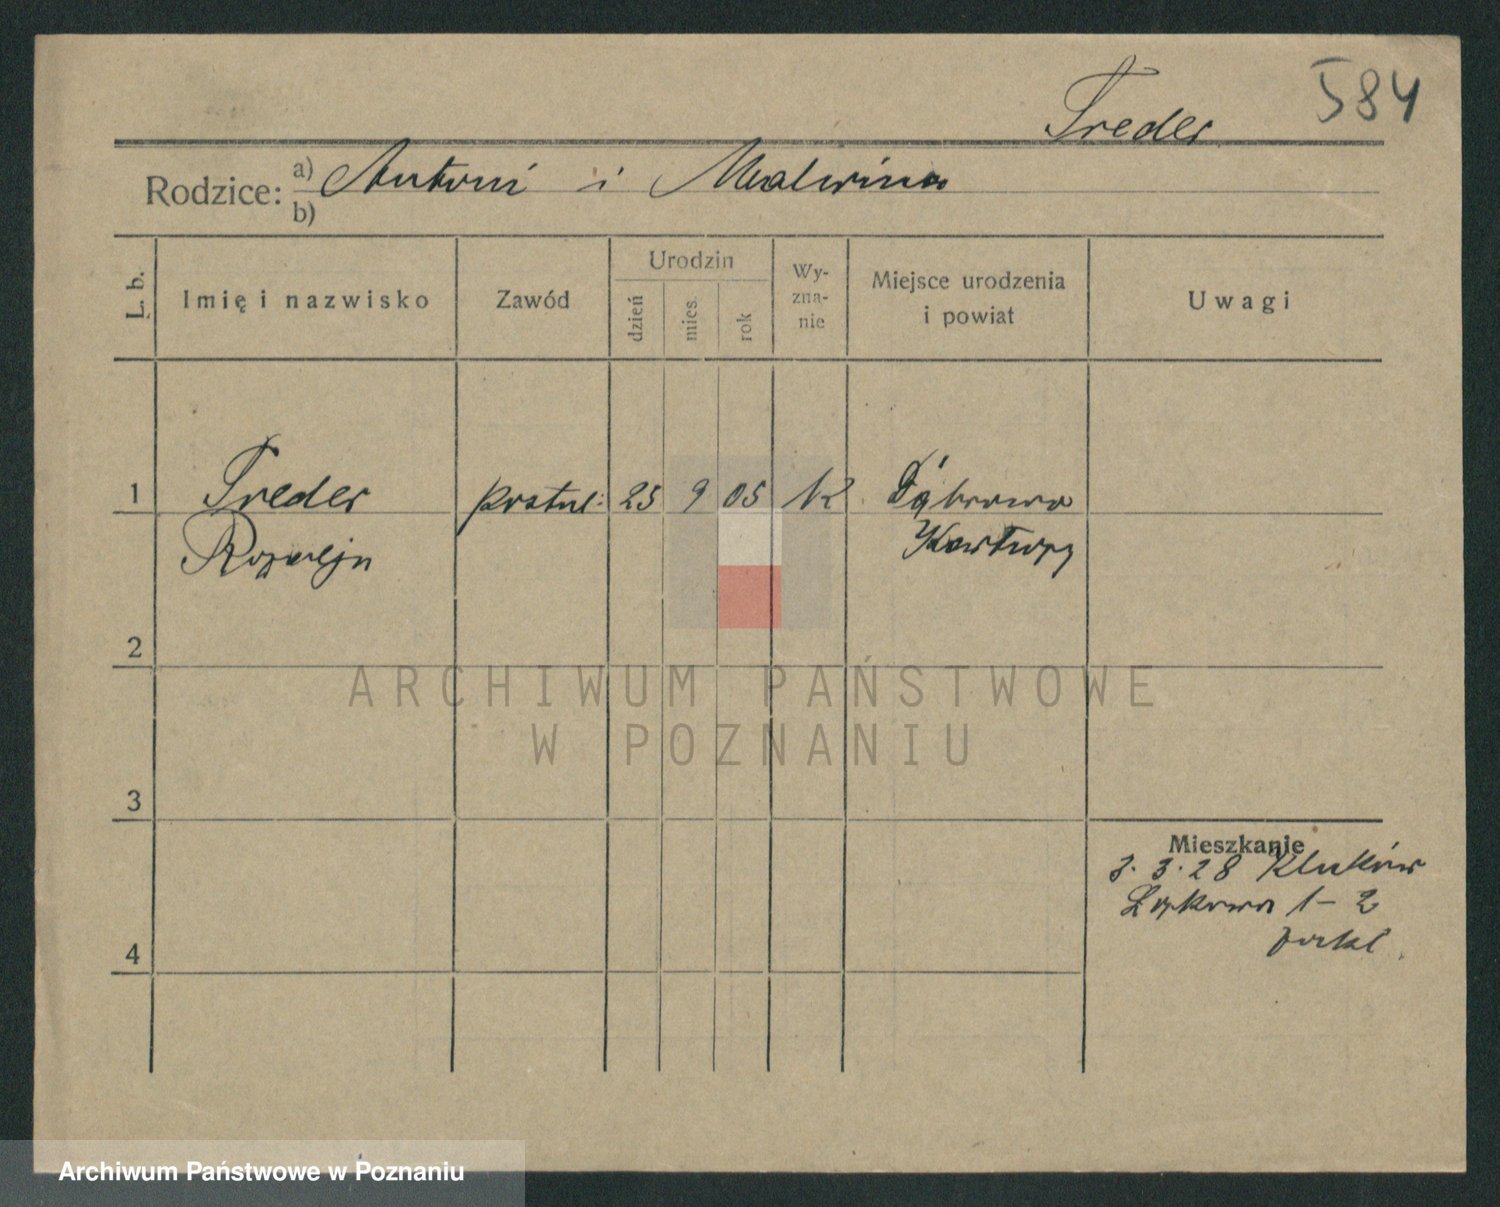 584
Treder
Rodzice: a) Antoni i Malwina
b)
L. b.
Imię i nazwisko
Zawód
Urodzin
dzień
mies.
rok
Wy-
zna-
nie
Miejsce urodzenia
i powiat
Uwagi
1 Treder postul: 25 9 05 K Dąbrowa
Rozalja Kartuzy
2
3
4
Mieszkanie
3.3.28 Kluków
Łąkowa 1-2
zakł.
ARCHIWUM PAŃSTWOWE
W POZNANIU
Archiwum Państwowe w Poznaniu